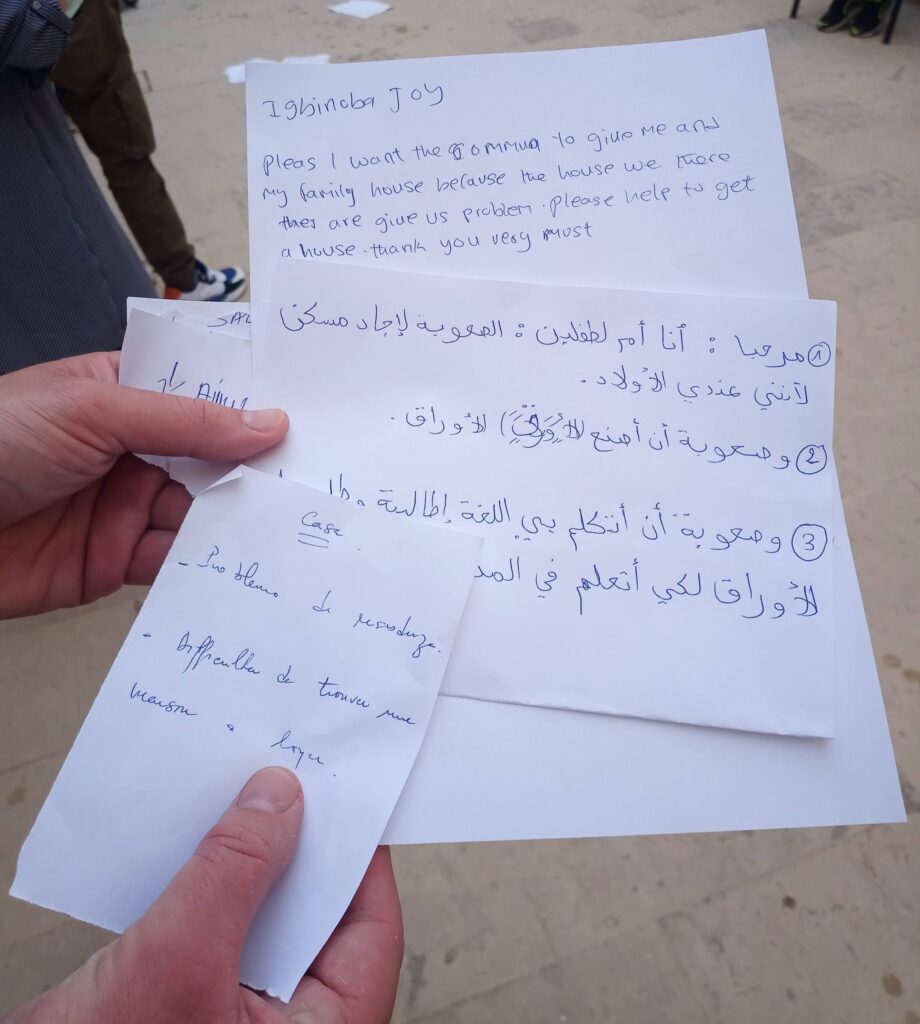 Igbinoba Joy
pleas I want the commun to give me and
my family house because the house we there
they are give us problem. please help to get
a house. thank you very must
SAL
① مرحبا : أنا أم لطفلين : الصعوبة لإجاد مسكن
لأنني عندي الأولاد.
② وصعوبة أن أصنع الأوراق.
③ وصعوبة أن أتكلم بي اللغة إطالية
الأوراق لكي أتعلم في المد
Case
- Problema di residenza.
- Difficulta de trouver une
maison a loyer.